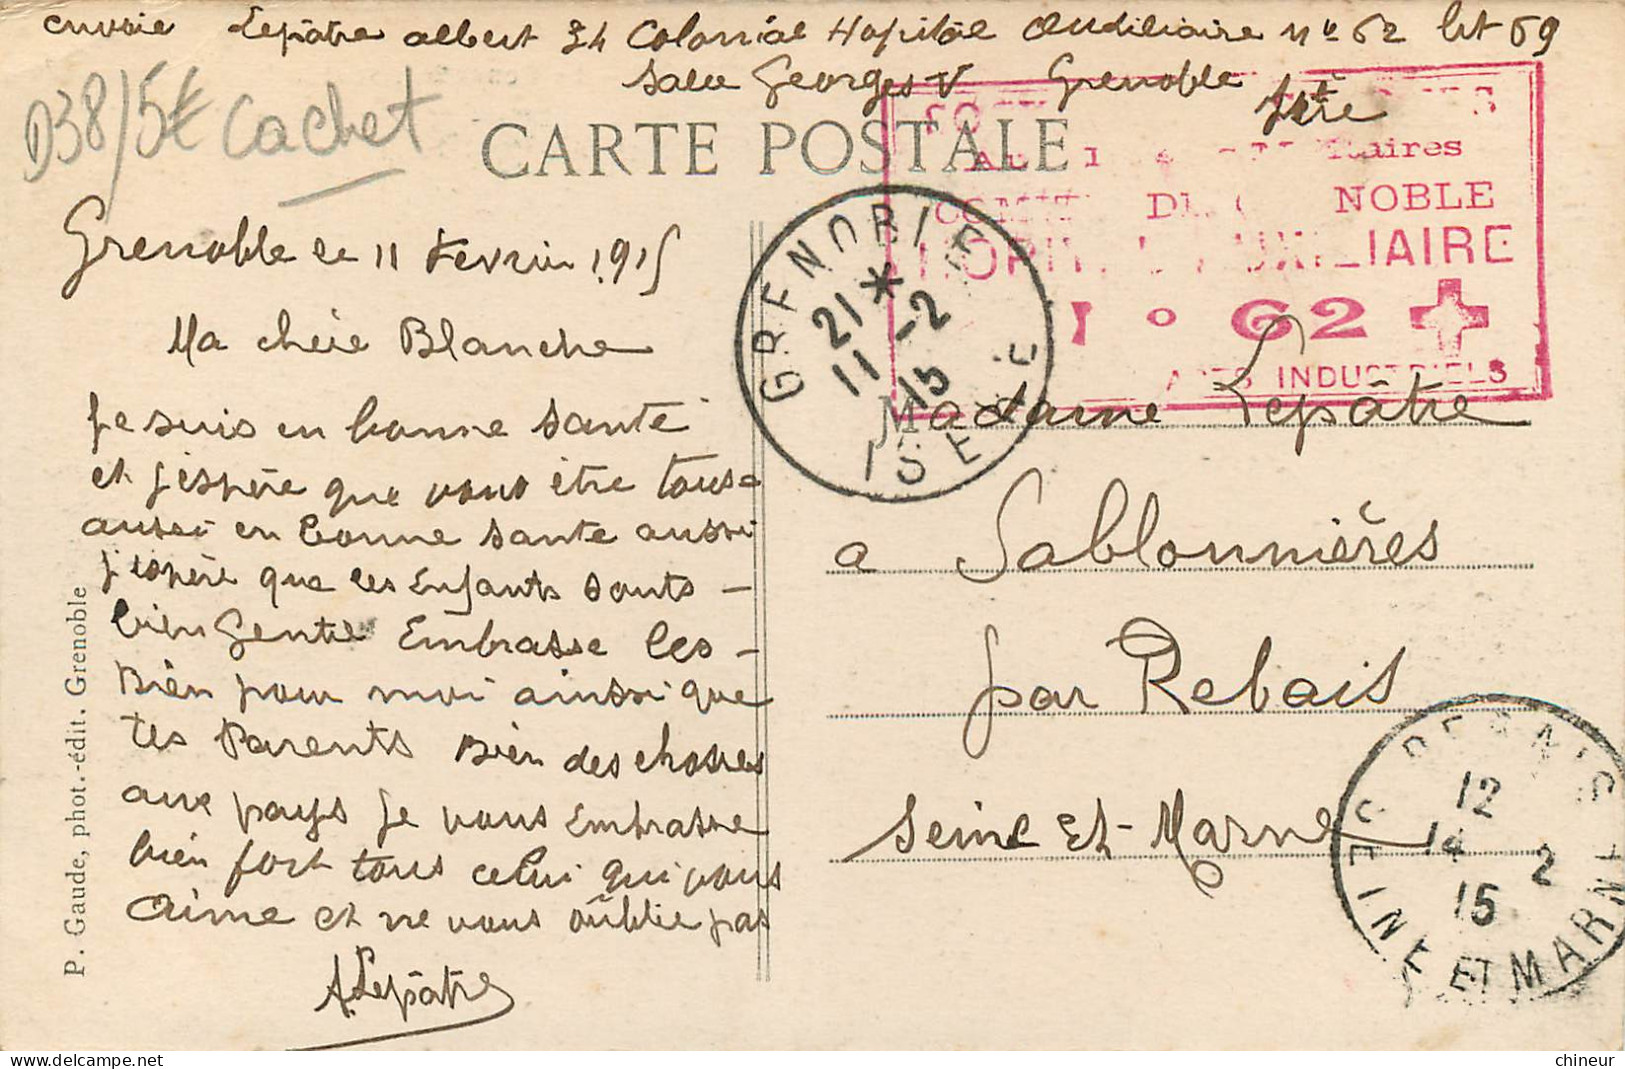 envoie Lepâtre albert 24 Colonial Hopital Auxiliaire nº 62 lit 69
Salle Georges V Grenoble
Isère
D38/5€ Cachet
CARTE POSTALE
COMITÉ DE GRENOBLE
HOPITAL AUXILIAIRE
N° 62
ARTS INDUSTRIELS
GRENOBLE
21 *
11 -2
15
ISERE
Grenoble le 11 Fevrier 1915
Ma chère Blanche
Je suis en bonne santé
et j'espère que vous être tous
aussi en bonne santé aussi
j'espère que les Enfants sonts
bien Gentil Embrasse les
Bien pour moi ainsi que
tes Parents Bien des choses
aux pays je vous Embrasse
bien fort tous celui qui vous
Aime et ne vous oûblie pas
A Lepâtre
P. Gaude, phot.-édit. Grenoble
Madame Lepâtre
a Sablonnières
par Rebais
Seine Et-Marne
12
14 2
15
SEINE ET MARNE
chineur